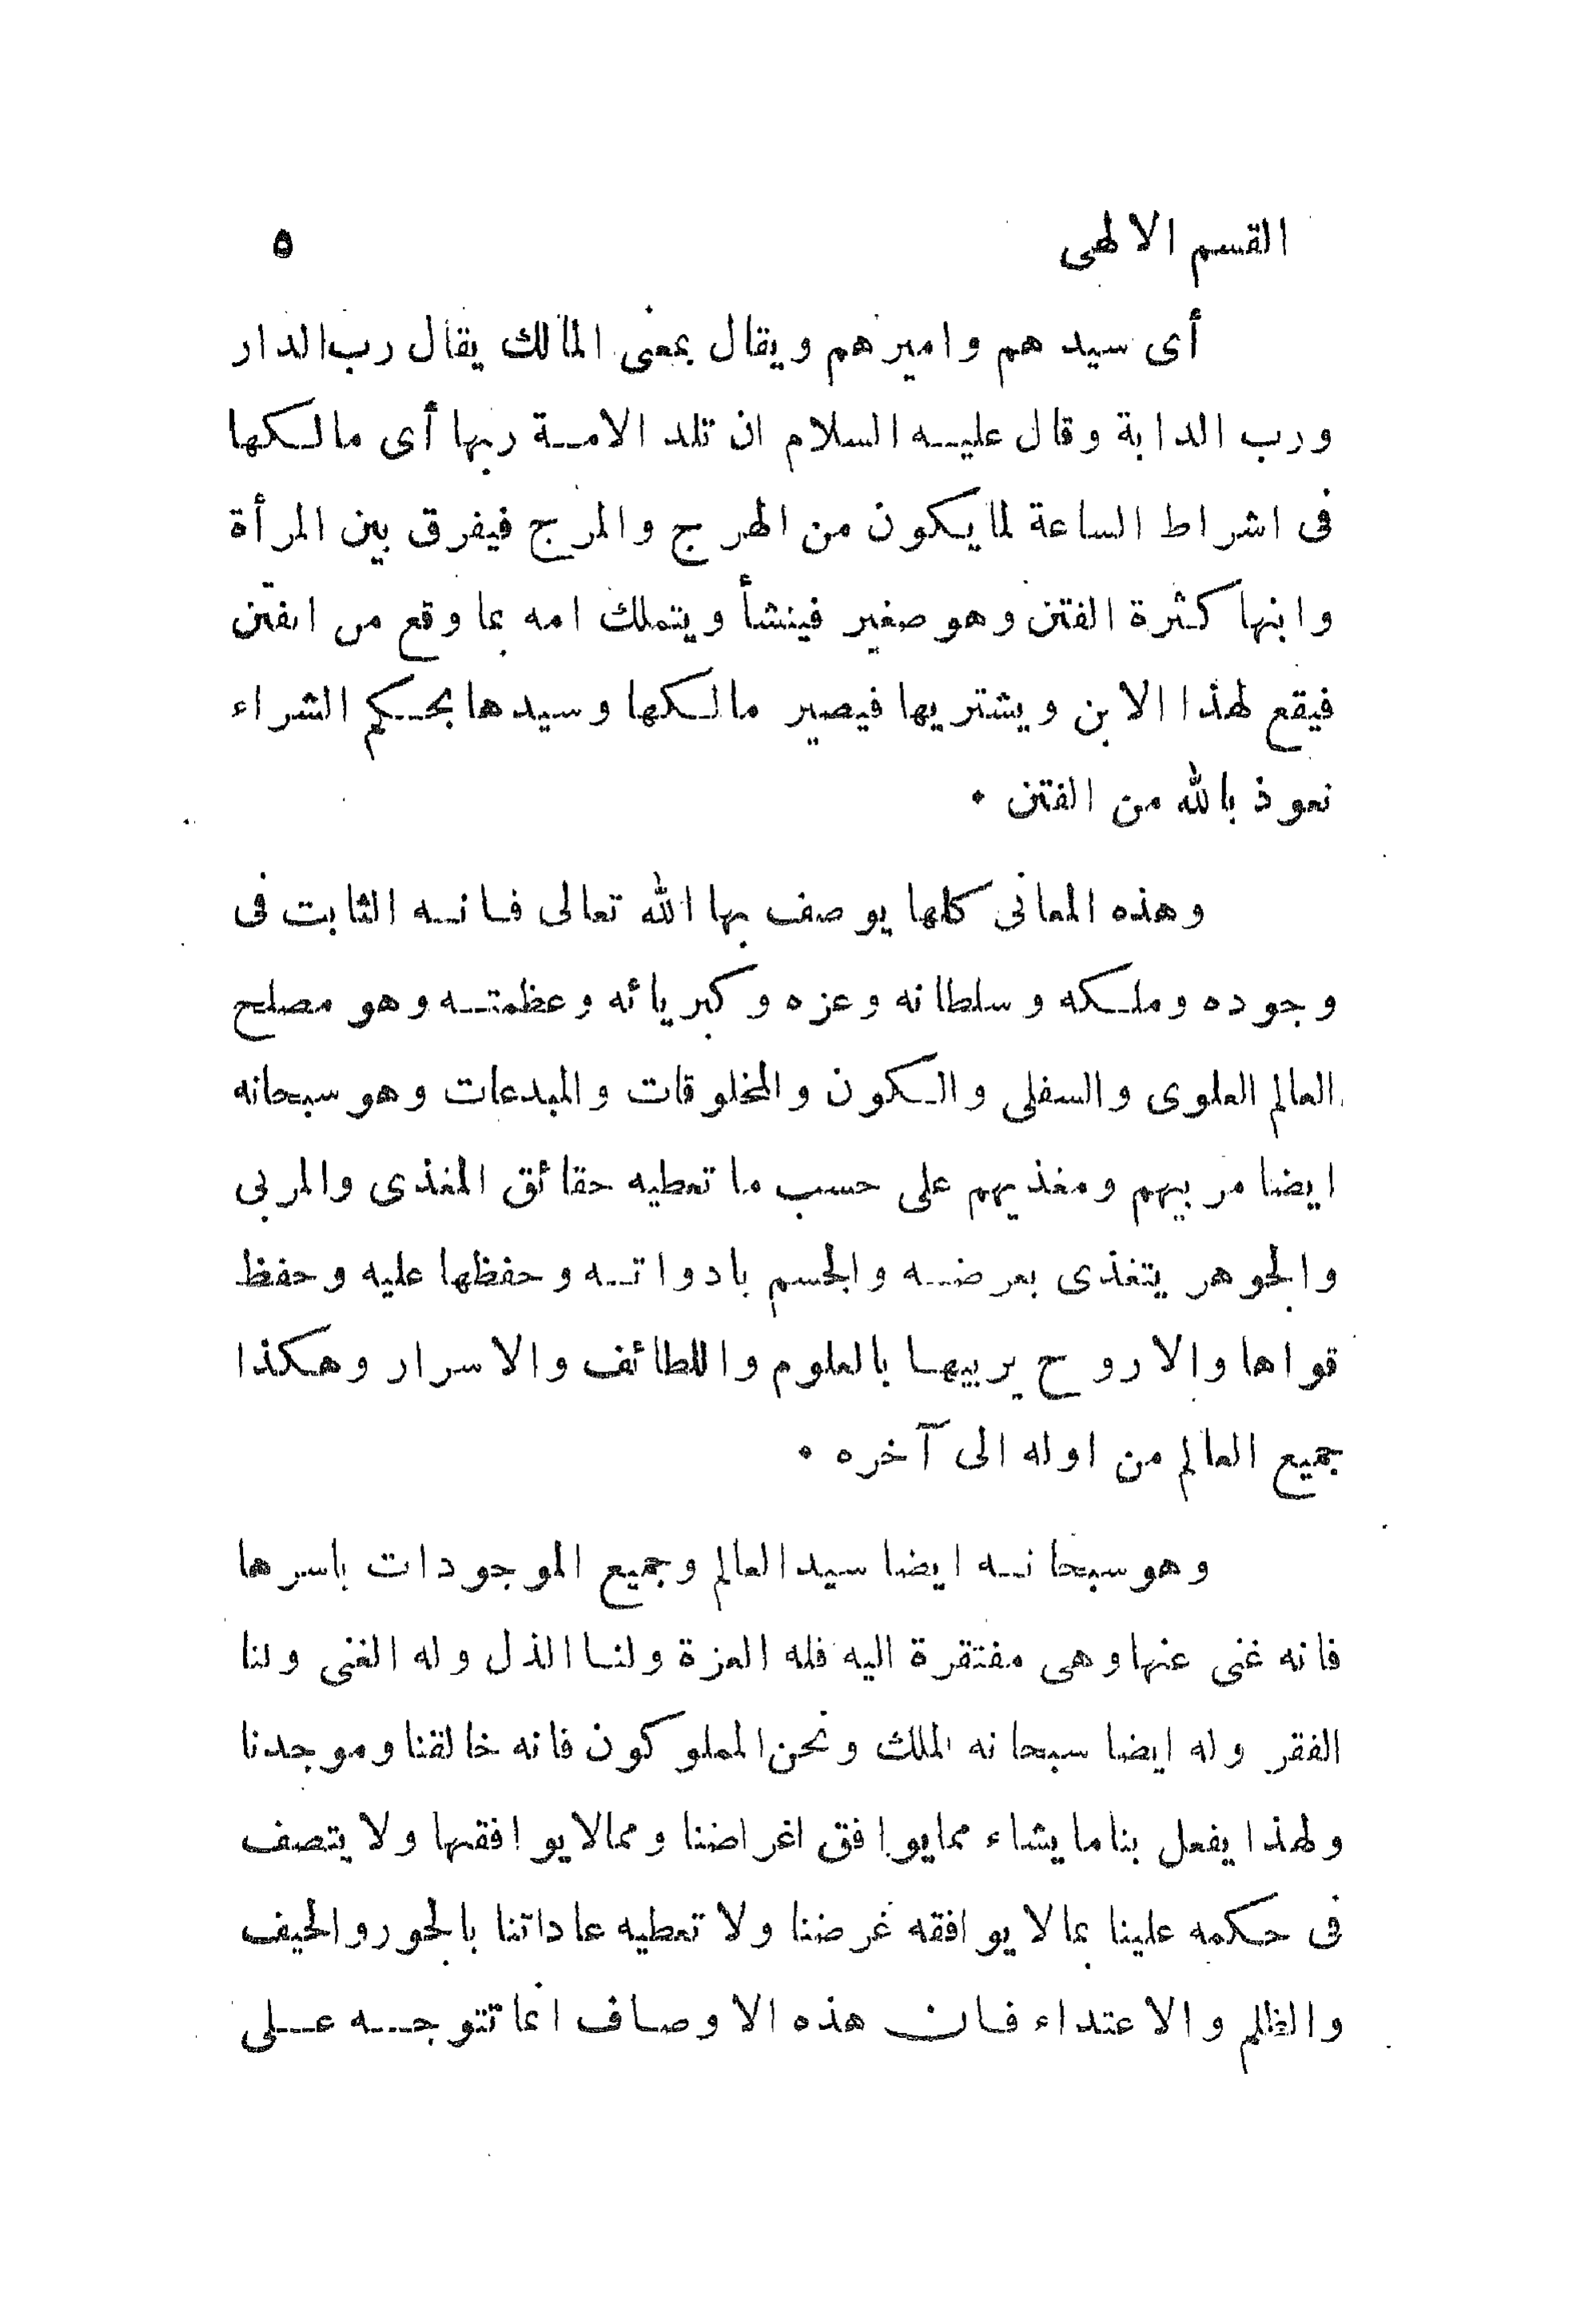 القسم الالهى ٥
أى سيدهم واميرهم ويقال بمعنى المالك يقال رب الدار
ورب الدابة وقال عليه السلام ان تلد الامة ربها أى مالكها
فى اشراط الساعة لما يكون من الهرج والمرج فيفرق بين المرأة
وابنها كثرة الفتن وهو صغير فينشأ ويتملك امه بما وقع من الفتن
فيقع لهذا الابن ويشتريها فيصير مالكها وسيدها بحكم الشراء
نعوذ بالله من الفتن ٠
وهذه المعانى كلها يوصف بها الله تعالى فانه الثابت فى
وجوده وملكه وسلطانه وعزه وكبريائه وعظمته وهو مصلح
العالم العلوى والسفلى والكون والمخلوقات والمبدعات وهو سبحانه
ايضا مربيهم ومغذيهم على حسب ما تعطيه حقائق المغذى والمربى
والجوهر يتغذى بعرضه والجسم بادواته وحفظها عليه وحفظ
قواها والاروح يربيها بالعلوم واللطائف والاسرار وهكذا
جميع العالم من اوله الى آخره ٠
وهو سبحانه ايضا سيد العالم وجميع الموجودات باسرها
فانه غنى عنها وهى مفتقرة اليه فله العزة ولنا الذل وله الغنى ولنا
الفقر وله ايضا سبحانه الملك ونحن المملوكون فانه خالقنا وموجدنا
ولهذا يفعل بنا ما يشاء مما يوافق اغراضنا ومما لا يوافقها ولا يتصف
فى حكمه علينا بما لا يوافقه غرضنا ولا تعطيه عاداتنا بالجور والحيف
والظلم والاعتداء فان هذه الاوصاف انما تتوجه على